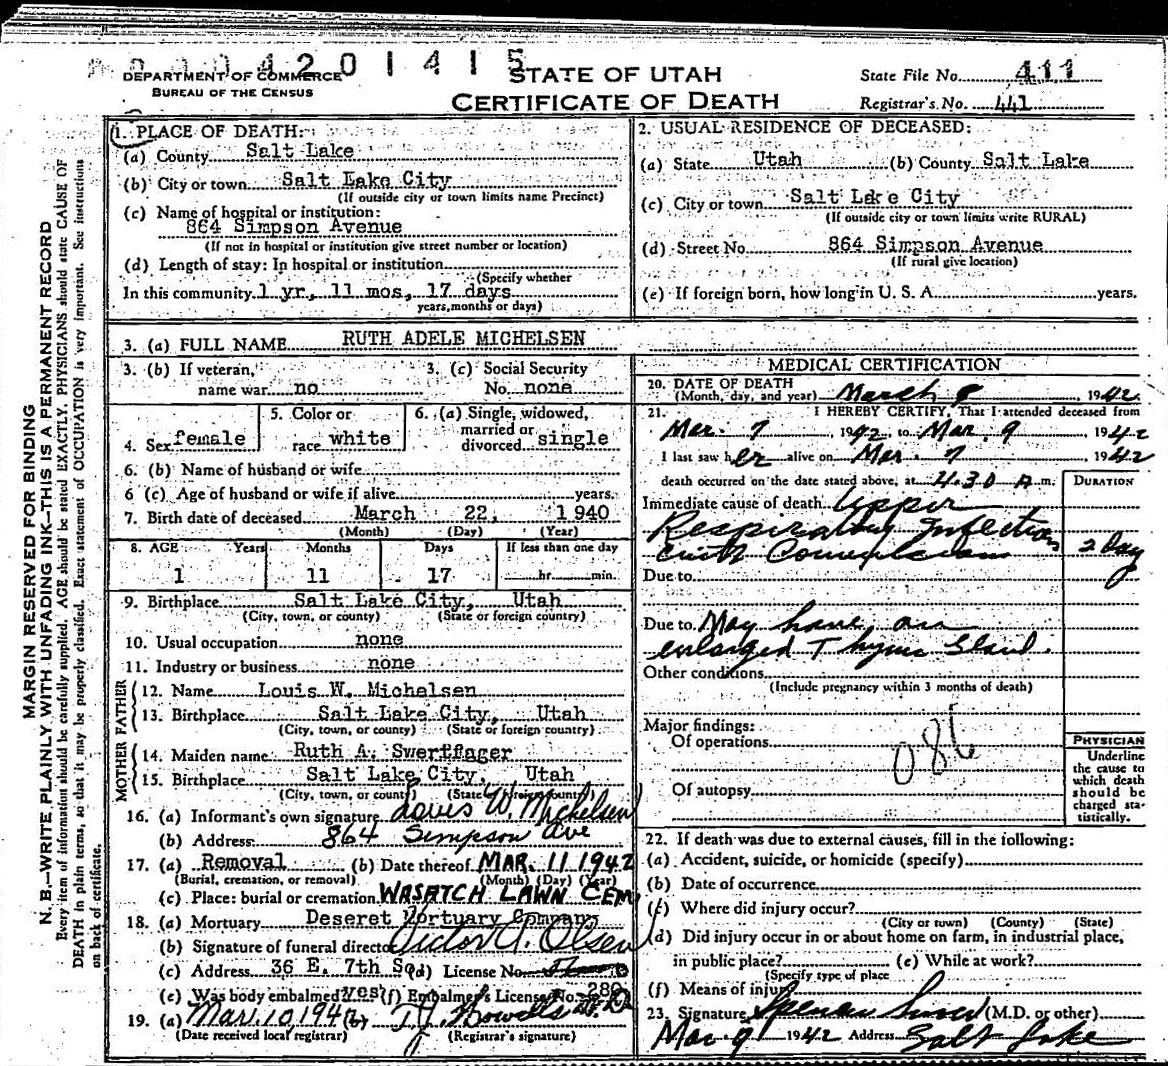 4201415
DEPARTMENT OF COMMERCE
BUREAU OF THE CENSUS
STATE OF UTAH
CERTIFICATE OF DEATH
State File No. 411
Registrar's No. 441
MARGIN RESERVED FOR BINDING
N. B.—WRITE PLAINLY, WITH UNFADING INK—THIS IS A PERMANENT RECORD
Every item of information should be carefully supplied. AGE should be stated EXACTLY. PHYSICIANS should state CAUSE OF
DEATH in plain terms, so that it may be properly classified. Exact statement of OCCUPATION is very important. See instructions
on back of certificate.
1. PLACE OF DEATH:
(a) County Salt Lake
(b) City or town Salt Lake City
(If outside city or town limits name Precinct)
(c) Name of hospital or institution:
864 Simpson Avenue
(If not in hospital or institution give street number or location)
(d) Length of stay: In hospital or institution
(Specify whether
In this community 1 yr, 11 mos, 17 days
years, months or days)
2. USUAL RESIDENCE OF DECEASED:
(a) State Utah (b) County Salt Lake
(c) City or town Salt Lake City
(If outside city or town limits write RURAL)
(d) Street No. 864 Simpson Avenue
(If rural give location)
(e) If foreign born, how long in U. S. A. years.
3. (a) FULL NAME RUTH ADELE MICHELSEN
3. (b) If veteran, name war no
3. (c) Social Security No. none
4. Sex female
5. Color or race white
6. (a) Single, widowed, married or divorced single
6. (b) Name of husband or wife
6 (c) Age of husband or wife if alive years.
7. Birth date of deceased March 22, 1940
(Month) (Day) (Year)
8. AGE Years Months Days If less than one day
1 11 17 hr. min.
9. Birthplace Salt Lake City, Utah
(City, town, or county) (State or foreign country)
10. Usual occupation none
11. Industry or business none
FATHER
12. Name Louis W. Michelsen
13. Birthplace Salt Lake City, Utah
(City, town, or county) (State or foreign country)
MOTHER
14. Maiden name Ruth A. Swertfager
15. Birthplace Salt Lake City, Utah
(City, town, or county) (State or foreign country)
16. (a) Informant's own signature Louis W. Michelsen
(b) Address 864 Simpson Ave
17. (a) Removal (b) Date thereof MAR. 11 1942
(Burial, cremation, or removal) (Month) (Day) (Year)
(c) Place: burial or cremation WASATCH LAWN CEM
18. (a) Mortuary Deseret Mortuary Company
(b) Signature of funeral director Victor A. Olsen
(c) Address 36 E. 7th So (d) License No.
(e) Was body embalmed? yes (f) Embalmer's License No. 280
19. (a) Mar. 10, 1942 (b) T. J. Howells M.D.
(Date received local registrar) (Registrar's signature)
MEDICAL CERTIFICATION
20. DATE OF DEATH
(Month, day, and year) March 1942
21. I HEREBY CERTIFY, That I attended deceased from
Mar. 7, 1942, to Mar. 9, 1942
I last saw her alive on Mar. 7 1942
death occurred on the date stated above, at 4.30 A. m.
DURATION
Immediate cause of death Upper
Respiratory Infection
with Convulsions 2 day
Due to
Due to May have an
enlarged Thymus Gland.
Other conditions
(Include pregnancy within 3 months of death)
Major findings:
Of operations
Of autopsy
PHYSICIAN
Underline
the cause to
which death
should be
charged sta-
tistically.
22. If death was due to external causes, fill in the following:
(a) Accident, suicide, or homicide (specify)
(b) Date of occurrence
(c) Where did injury occur?
(City or town) (County) (State)
(d) Did injury occur in or about home on farm, in industrial place,
in public place? (e) While at work?
(Specify type of place
(f) Means of injury
23. Signature (M.D. or other)
Mar. 9 1942 Address Salt Lake